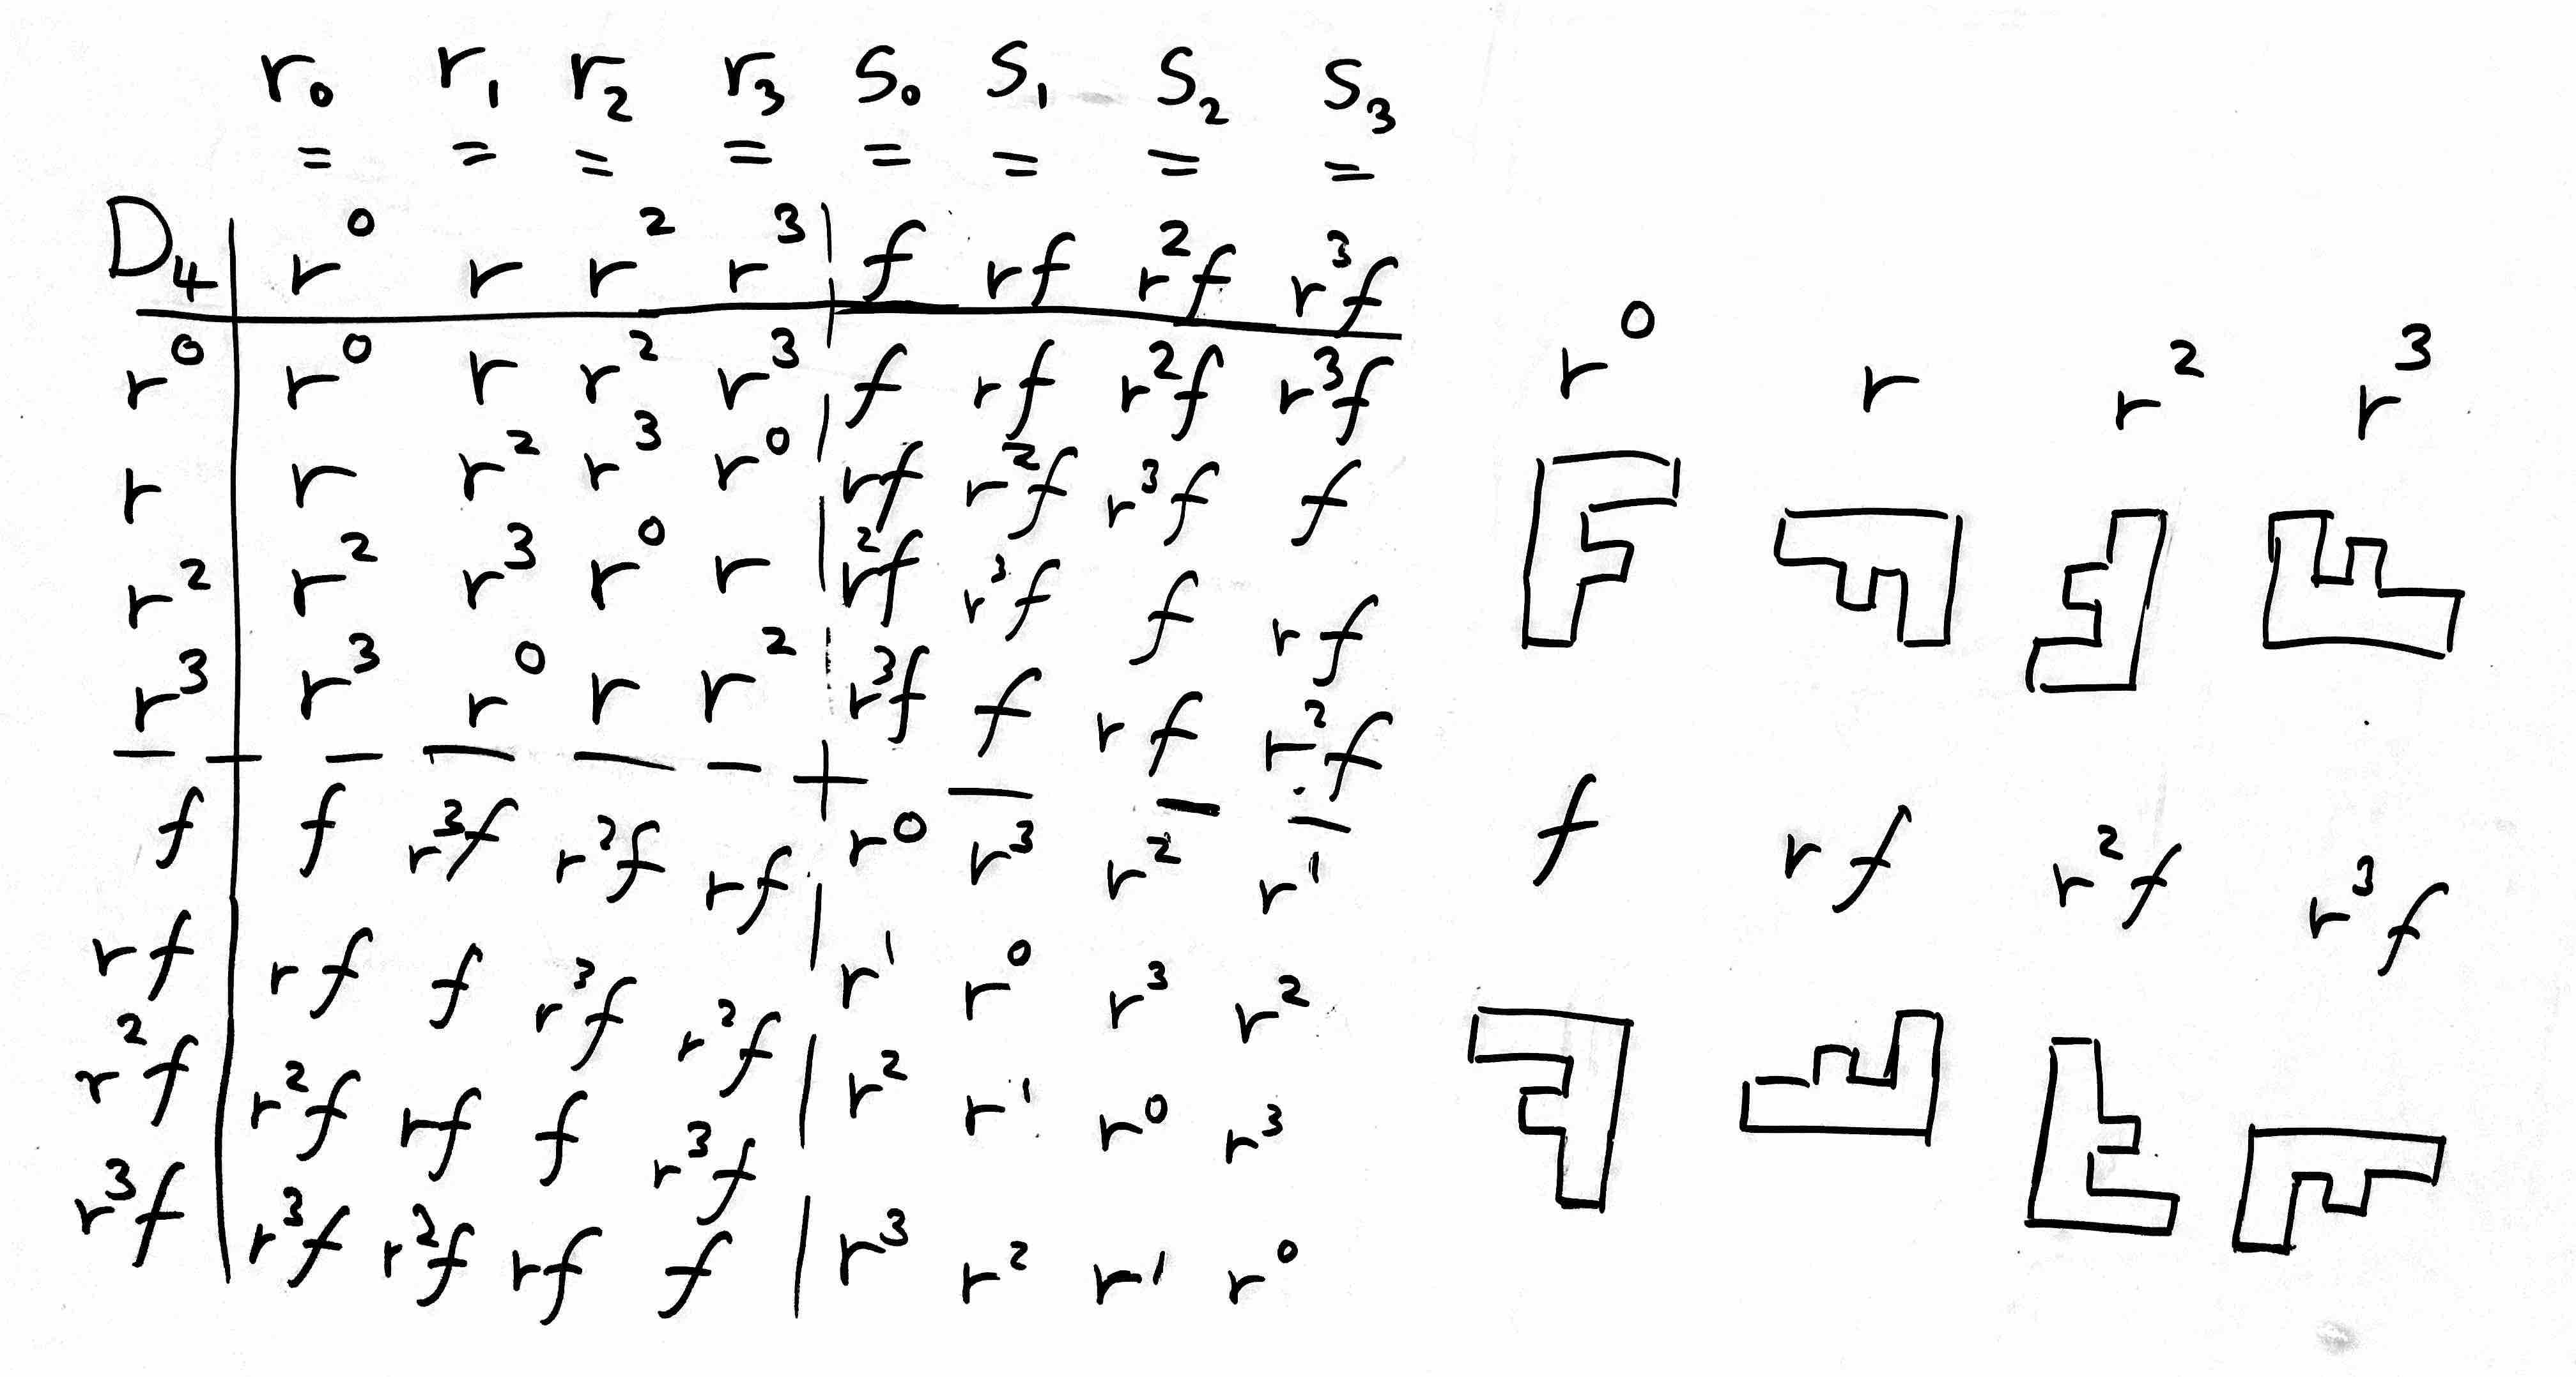 r₀ r₁ r₂ r₃ s₀ s₁ s₂ s₃
= = = = = = = =
D₄ r⁰ r r² r³ f rf r²f r³f
r⁰ r⁰ r r² r³ f rf r²f r³f
r r r² r³ r⁰ rf r²f r³f f
r² r² r³ r⁰ r r²f r³f f rf
r³ r³ r⁰ r r² r³f f rf r²f
f f r³f r²f rf r⁰ r³ r² r¹
rf rf f r³f r²f r¹ r⁰ r³ r²
r²f r²f rf f r³f r² r¹ r⁰ r³
r³f r³f r²f rf f r³ r² r¹ r⁰
r⁰ r r² r³
f rf r²f r³f